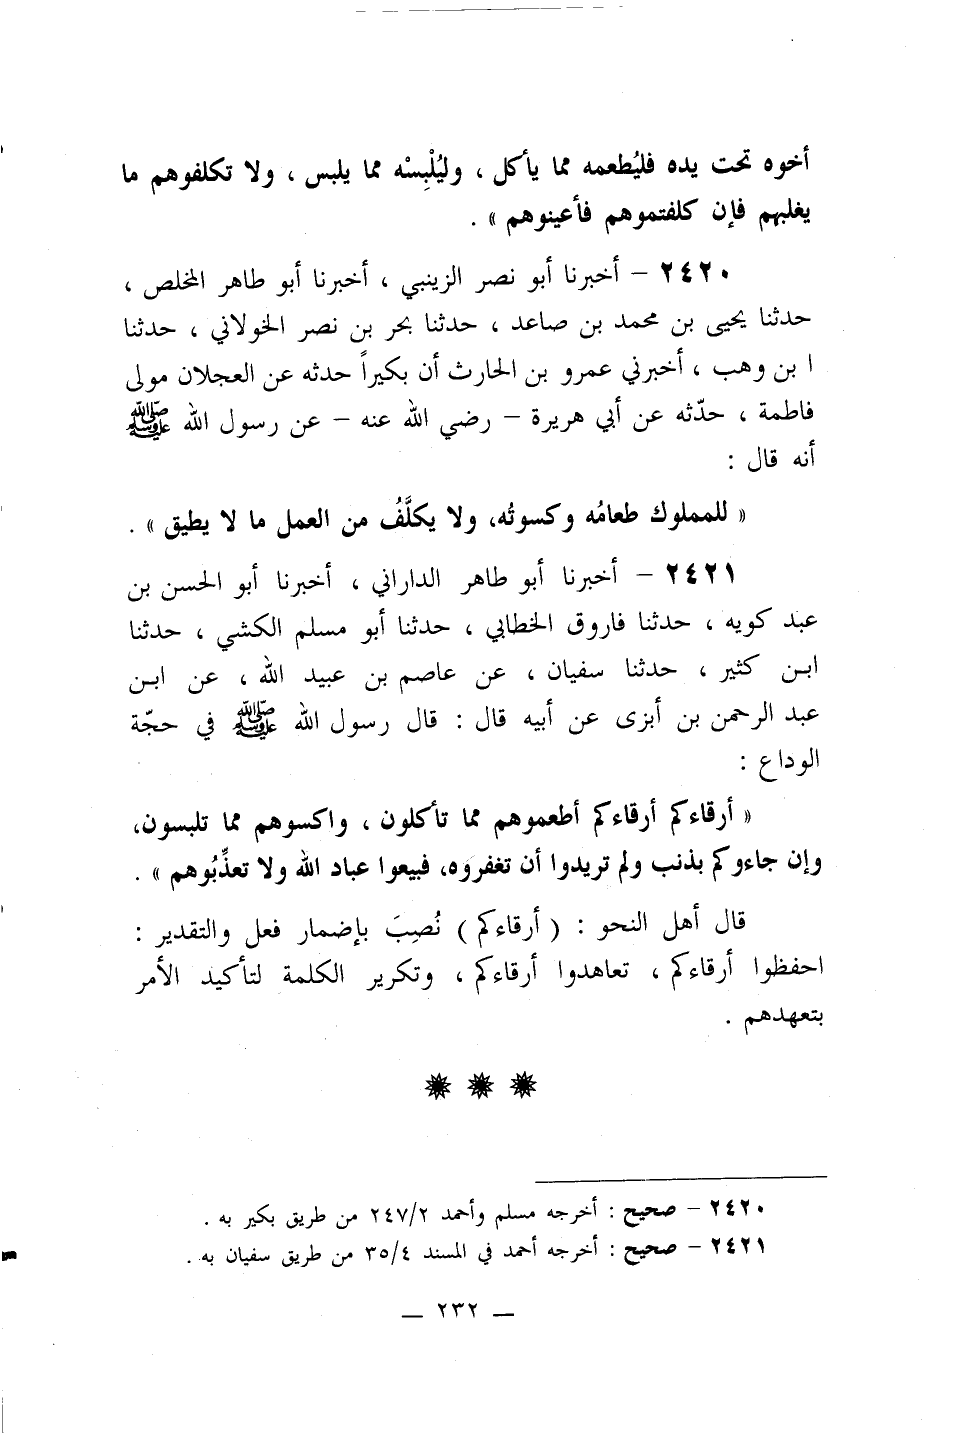 أخوه تحت يده فليُطعمه مما يأكل ، وليُلْبِسْه مما يلبس ، ولا تكلفوهم ما
يغلبهم فإن كلفتموهم فأعينوهم » .
٢٤٢٠ – أخبرنا أبو نصر الزينبي ، أخبرنا أبو طاهر المخلص ،
حدثنا يحيى بن محمد بن صاعد ، حدثنا بحر بن نصر الخولاني ، حدثنا
ابن وهب ، أخبرني عمرو بن الحارث أن بكيراً حدثه عن العجلان مولى
فاطمة ، حدّثه عن أبي هريرة – رضي الله عنه – عن رسول الله ﷺ
أنه قال :
« للمملوك طعامُه وكسوتُه، ولا يكلَّفُ من العمل ما لا يطيق » .
٢٤٢١ – أخبرنا أبو طاهر الداراني ، أخبرنا أبو الحسن بن
عبد كويه ، حدثنا فاروق الخطابي ، حدثنا أبو مسلم الكشي ، حدثنا
ابن كثير ، حدثنا سفيان ، عن عاصم بن عبيد الله ، عن ابن
عبد الرحمن بن أبزى عن أبيه قال : قال رسول الله ﷺ في حجّة
الوداع :
« أرقاءكم أرقاءكم أطعموهم مما تأكلون ، واكسوهم مما تلبسون،
وإن جاءوكم بذنب ولم تريدوا أن تغفروه، فبيعوا عباد الله ولا تعذِّبُوهم » .
قال أهل النحو : ( أرقاءكم ) نُصِبَ بإضمار فعل والتقدير :
احفظوا أرقاءكم ، تعاهدوا أرقاءكم ، وتكرير الكلمة لتأكيد الأمر
بتعهدهم .
٢٤٢٠ – صحيح : أخرجه مسلم وأحمد ٢٤٧/٢ من طريق بكير به .
٢٤٢١ – صحيح : أخرجه أحمد في المسند ٣٥/٤ من طريق سفيان به .
— ٢٣٢ —